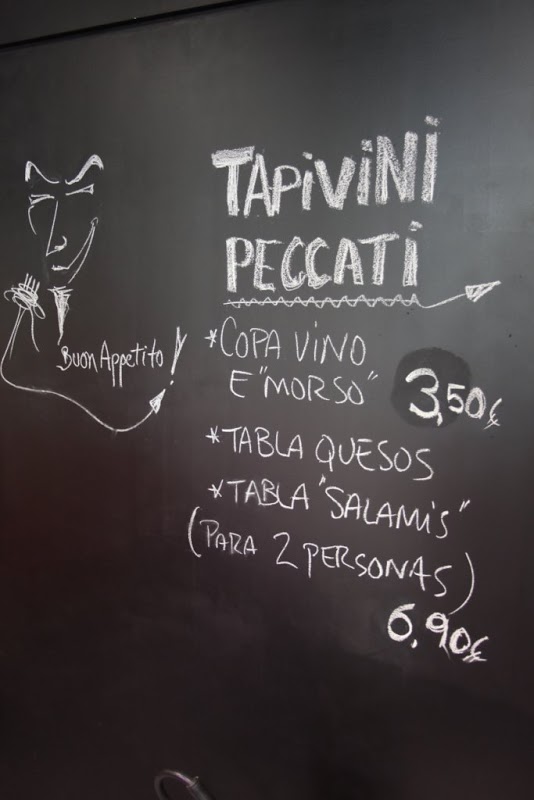 TAPiViNi
PECCATi
*COPA ViNO
E "MORSO" 3,50€
*TABLA QUESOS
*TABLA "SALAMiS"
(PARA 2 PERSONAS)
6,90€
Buon Appetito!